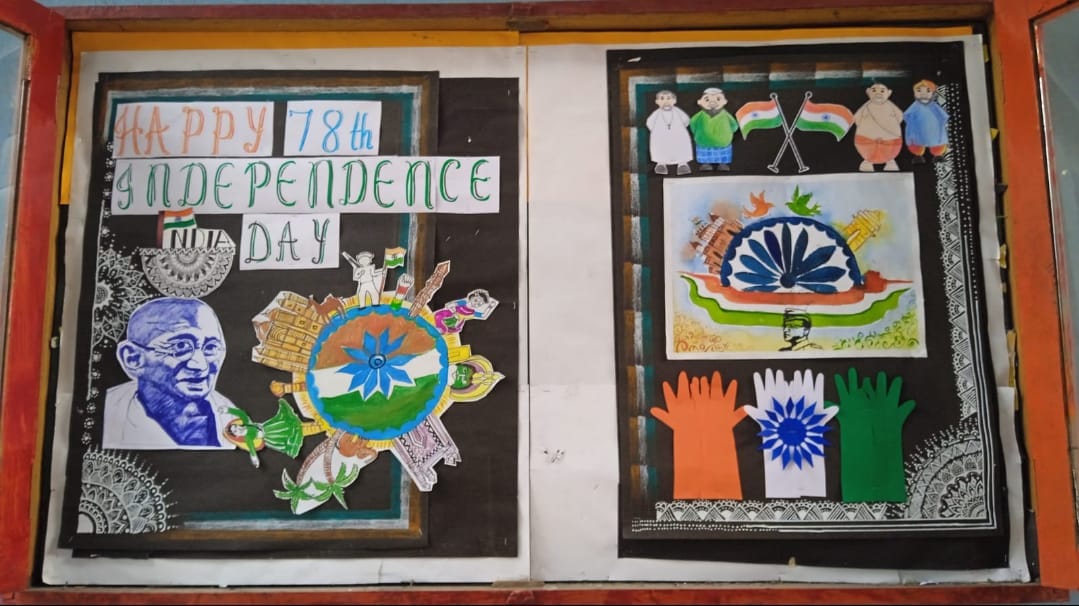 HAPPY 78th
INDEPENDENCE
DAY
INDIA